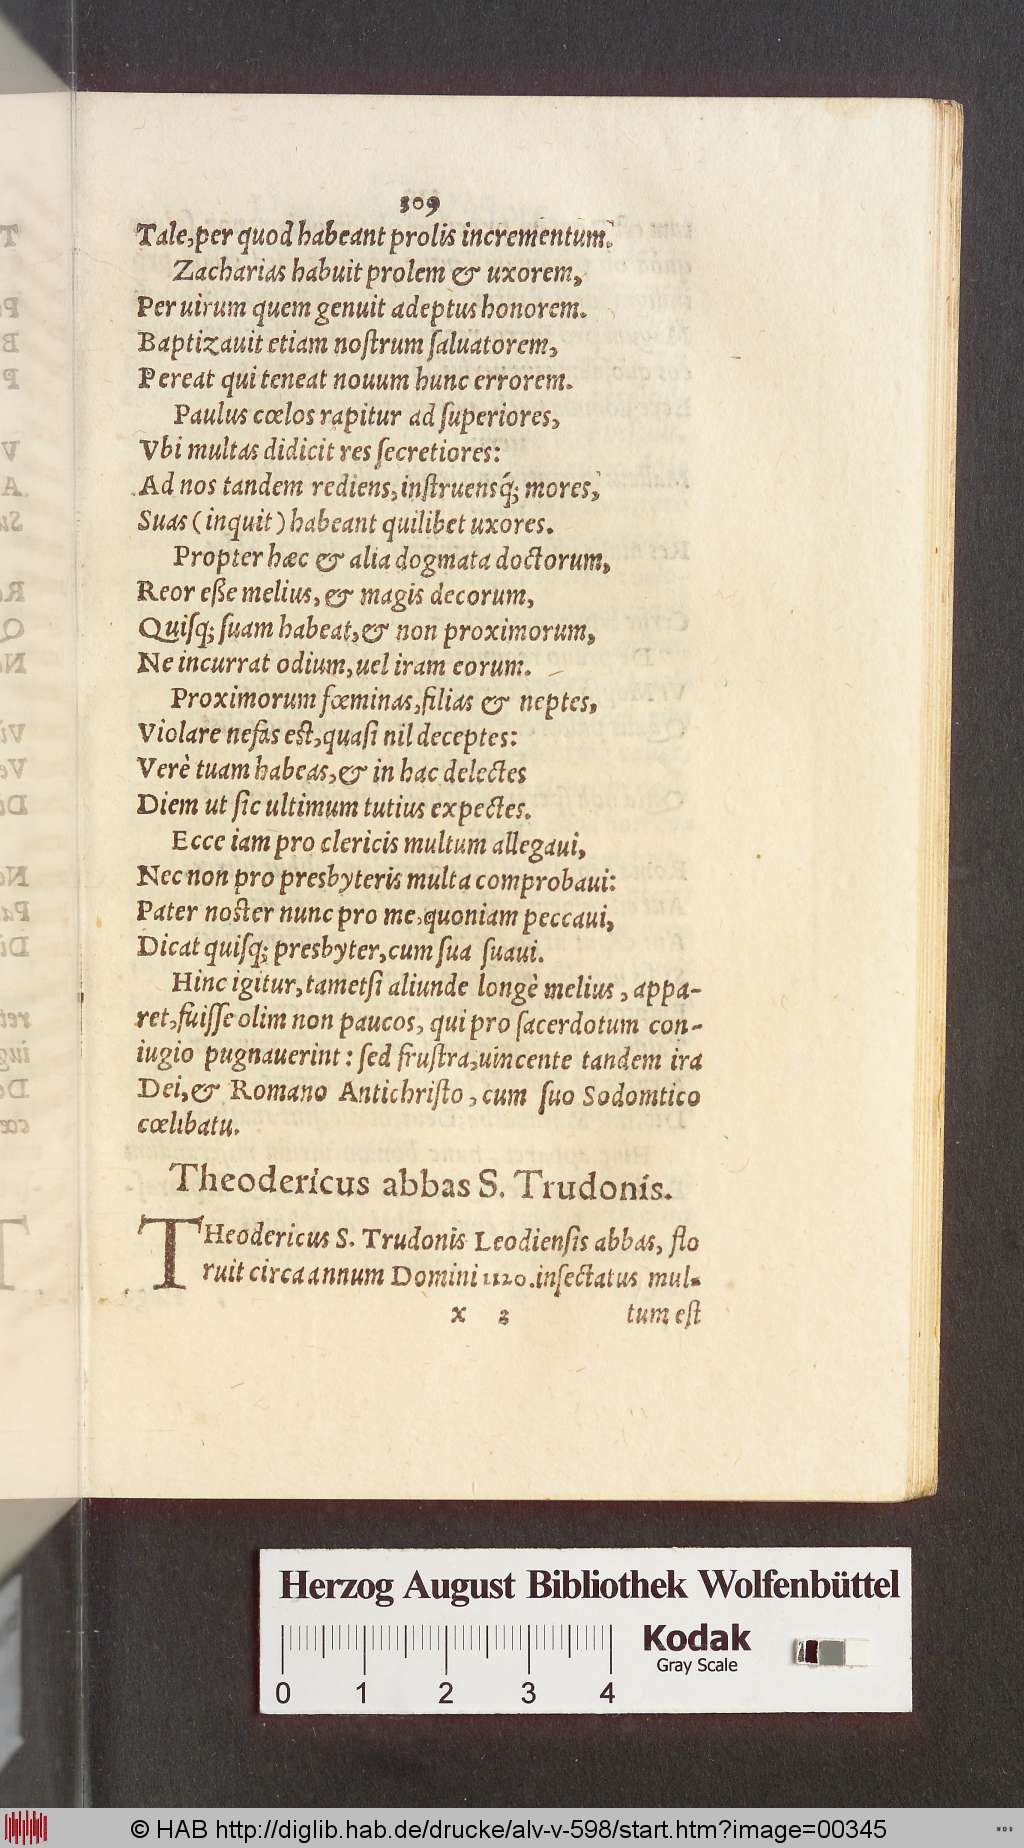 309
Tale, per quod habeant prolis incrementum.
Zacharias habuit prolem & uxorem,
Per uirum quem genuit adeptus honorem.
Baptizauit etiam noſtrum ſaluatorem,
Pereat qui teneat nouum hunc errorem.
Paulus cœlos rapitur ad ſuperiores,
Vbi multas didicit res ſecretiores:
Ad nos tandem rediens, inſtruensq́; mores,
Suas (inquit) habeant quilibet uxores.
Propter hæc & alia dogmata doctorum,
Reor eſſe melius, & magis decorum,
Quiſq; ſuam habeat, & non proximorum,
Ne incurrat odium, uel iram eorum.
Proximorum fœminas, filias & neptes,
Violare nefas eſt, quaſi nil deceptes:
Verè tuam habeas, & in hac delectes
Diem ut ſic ultimum tutius expectes.
Ecce iam pro clericis multum allegaui,
Nec non pro presbyteris multa comprobaui:
Pater noſter nunc pro me, quoniam peccaui,
Dicat quiſq; presbyter, cum ſua ſuaui.
Hinc igitur, tametſi aliunde longè melius, appa-
ret, fuiſſe olim non paucos, qui pro ſacerdotum con-
iugio pugnauerint: ſed fruſtra, uincente tandem ira
Dei, & Romano Antichriſto, cum ſuo Sodomtico
cœlibatu.
Theodericus abbas S. Trudonis.
THeodericus S. Trudonis Leodienſis abbas, flo
ruit circa annum Domini 1120. inſectatus mul-
x 3 tum eſt
Herzog August Bibliothek Wolfenbüttel
Kodak
Gray Scale
0 1 2 3 4
© HAB http://diglib.hab.de/drucke/alv-v-598/start.htm?image=00345